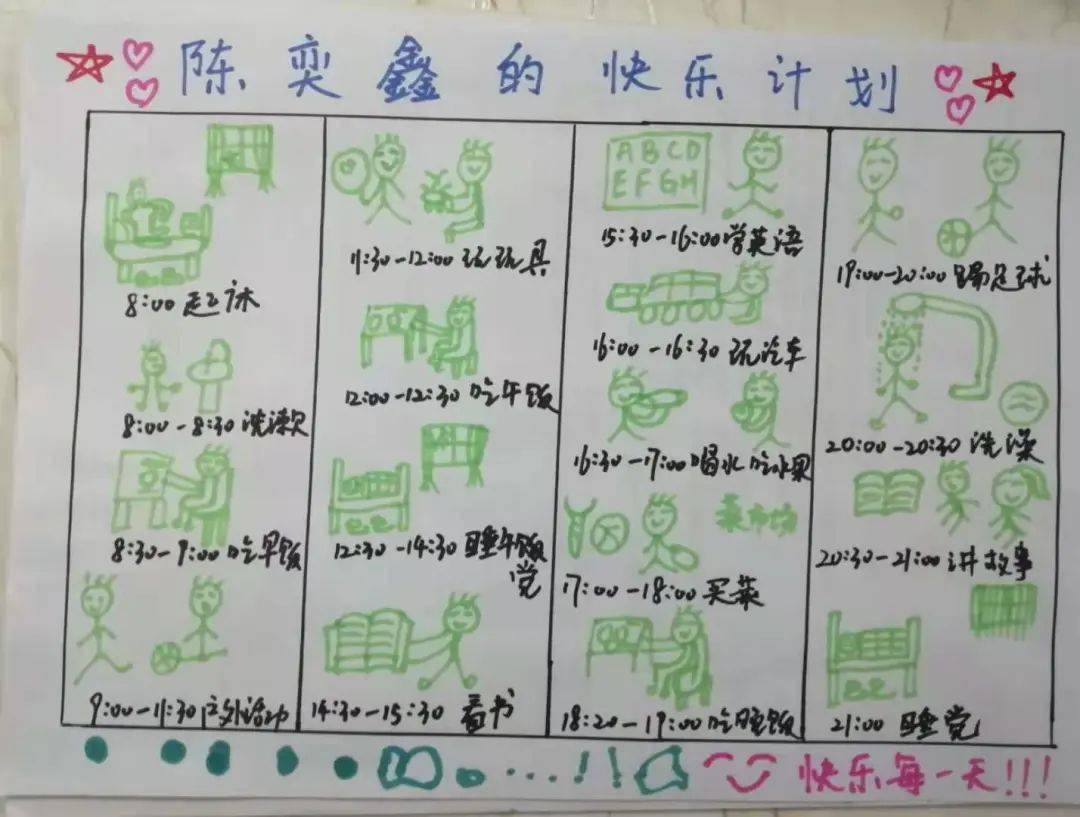 陈奕鑫的快乐计划
8:00 起床
8:00-8:30 洗漱
8:30-9:00 吃早饭
9:00-11:30 户外活动
11:30-12:00 玩玩具
12:00-12:30 吃午饭
12:30-14:30 睡午饭
觉
14:30-15:30 看书
ABCD
EFGH
15:30-16:00 学英语
16:00-16:30 玩汽车
16:30-17:00 喝水吃水果
菜市场
17:00-18:00 买菜
18:20-19:00 吃晚饭
19:00-20:00 踢足球
20:00-20:30 洗澡
20:30-21:00 讲故事
21:00 睡觉
...!!
快乐每一天!!!